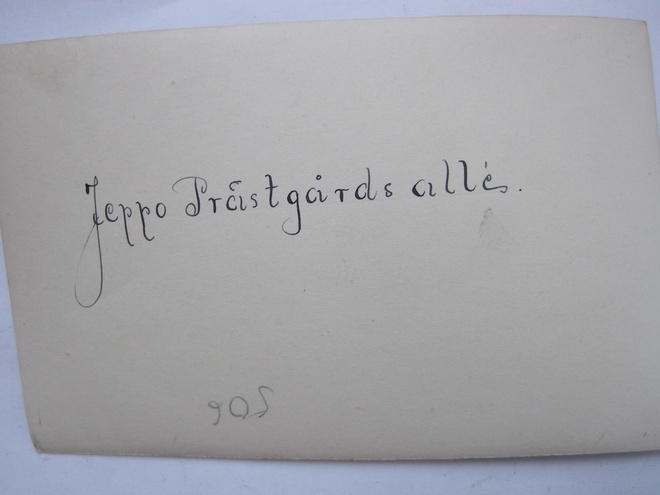 Jeppo Prästgårds allé.